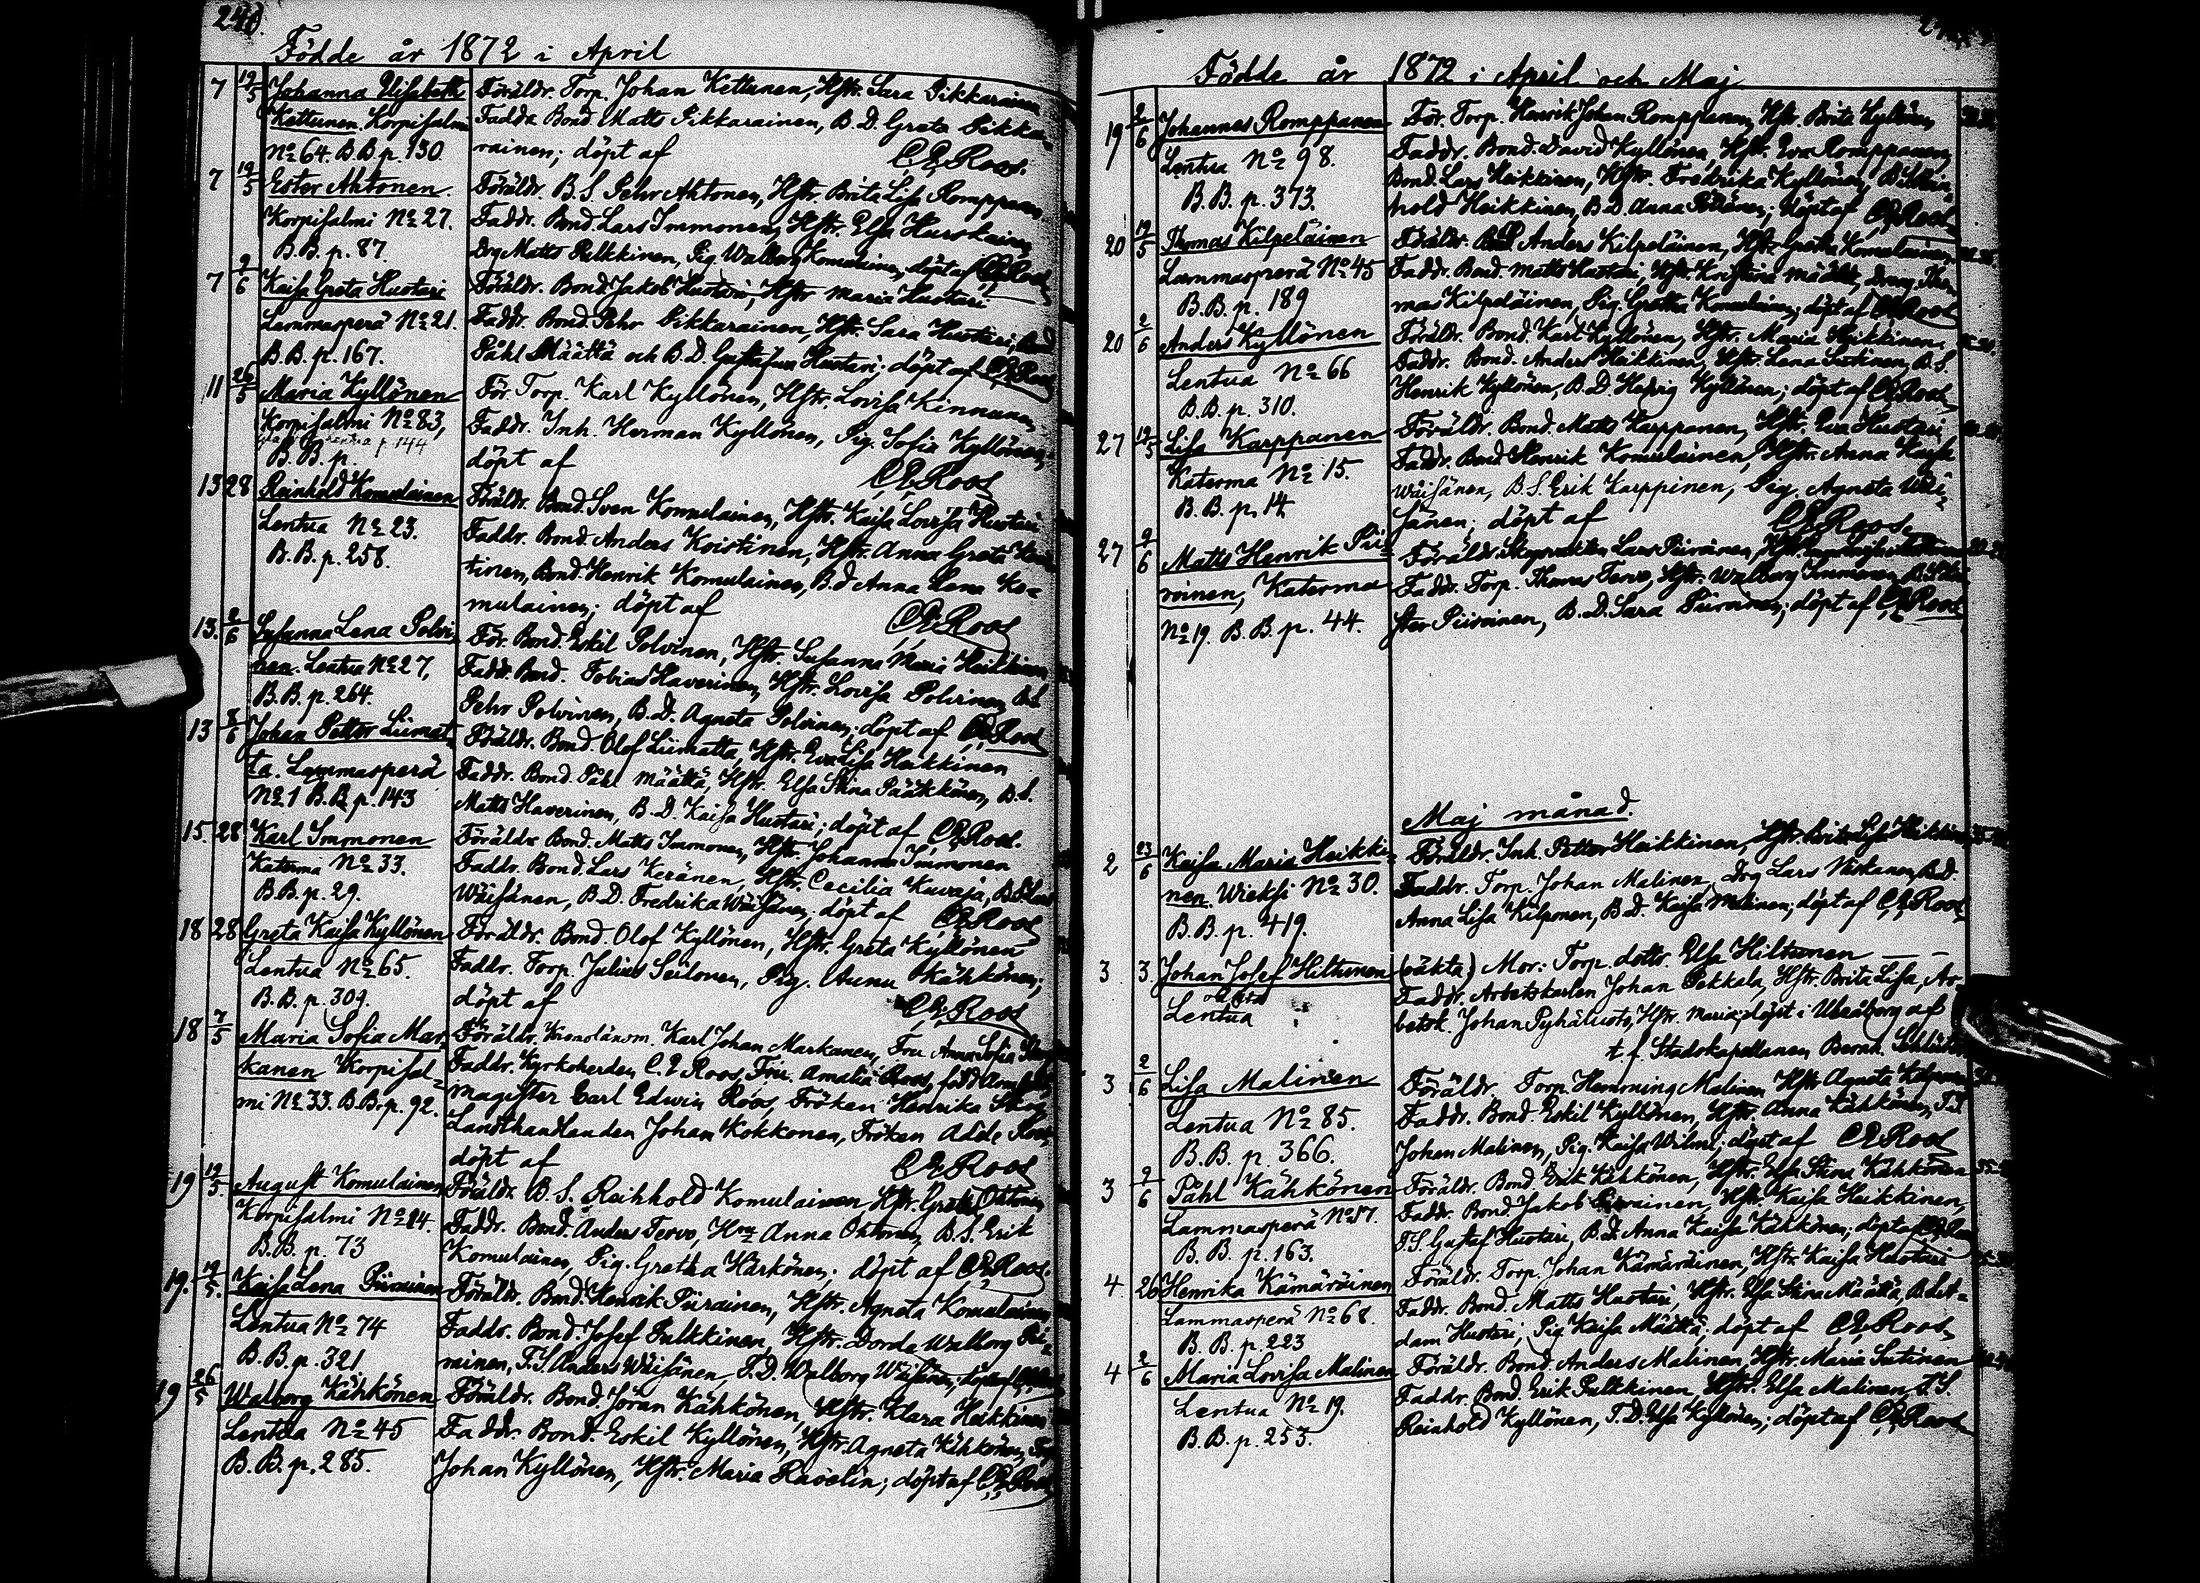 240.
Födde år 1872 i April
7 19/5 Johanna Elisabeth Föräldr. Torp. Johan Kettunen, Hstr. Sara Pikkarainen
Kettunen. Korpisalmi Fadda Bond. Matts Pikkarainen, B. D. Greta Pikka-
No 64. B.B.p. 130. rainen; döpt af C.E. Roos.
7 19/5 Ester Ahtonen. Föräldr. B. S. Pehr Ahtonen, Hstr. Brita Lisa Romppanen
Korpisalmi No 27. Faddr. Bond. Lars Immonen, Hstr. Elsa Hurskainen
B.B. p. 87. Drg Matts Pulkkinen, Pig. Walborg Komulainen; döpt af C.E. Roos
7 2/6 Kaisa Greta Huotari Föräldr. Bond Jakob Huotari, Hstr Maria Huotari
Lammasperä No 21. Faddr. Bond. Pehr Pikkarainen, Hstr. Sara Huotari, Bond
B.B. p. 167. Påhl Määttä och B. D. Gustafva Huotari; döpt af C.E. Roos
11 26/5 Maria Kyllönen För. Torp. Karl Kyllönen, Hstr. Lovisa Kinnunen
Korpisalmi No 83, Faddr. Inh. Herman Kyllönen, Pig. Sofia Kyllönen;
p. 144
B. B. p. döpt af C.E. Roos
13 28 Reinhold Komulainen Föräldr. Bond. Sven Komulainen, Hstr. Kaisa Lovisa Huotari
Lentua No 23. Faddr. Bond. Anders Koistinen, Hstr. Anna Greta
B.B. p. 258. tinen, Bond. Henrik Komulainen, B. d Anna Lena Ko-
mulainen; döpt af C.E. Roos
13. 2/6 Susanna Lena Polvi- För. Bond. Eskil Polvinen, Hstr. Susanna Maria Heikkinen
nen. Lentua No 27, Faddr. Bond. Tobias Haverinen, Hstr. Lovisa Polvinen, B.S.
B.B. p. 264. Pehr Polvinen, B. D. Agneta Polvinen; döpt af C.E. Roos
13 8/6 Johan Petter Liimat- Föräldr. Bond. Olof Liimatta, Hstr. Eva Lisa Heikkinen
ta. Lammasperä Faddr. Bond. Påhl Määttä, Hstr. Elsa Stina Pääkkönen, B. S.
No 1 B.B. p. 143 Matts Haverinen, B. D. Kaisa Huotari; döpt af C.E. Roos.
15. 28 Karl Immonen Föräldr Bond. Matts Immonen, Hstr. Johanna Immonen
Katerma No 33. Faddr. Bond. Lars Keränen, Hstr. Cecilia Kuvaja, B. S. Lars
B.B. p. 29. Wäisänen, B. D. Fredrika Wäisänen; döpt af C.E. Roos
18 28 Greta Kaisa Kyllönen Föräldr. Bond. Olof Kyllönen, Hstr. Greta Kyllönen
Lentua No 65. Faddr. Torp. Julius Seilonen, Pig. Anna Kähkönen;
B. B. p. 309. döpt af C.E. Roos
18 7/5 Maria Sofia Mar- Föräldr. Kronolänsm. Karl Johan Markanen, Fru Anna Sofia
kanen Korpisal- Faddr. Kyrkoherden C. E Roos, Fru. Amalia Roos, född
mi No 33. B.B. p. 92. Magister Carl Edwin Roos, Fröken Henrika
Landthandlanden Johan Kokkonen, Fröken Adele Roos,
döpt af C.E. Roos
19 19/5. August Komulainen Föräldr. B. S. Reihhold Komulainen, Hstr. Greta Ohtonen
Korpisalmi No 24. Faddr. Bond. Anders Tervo, Anna Ohtonen, B. S. Erik
B. B. p. 73 Komulainen, Pig. Gretha Härkönen; döpt af C.E. Roos.
19. 19/5. Kaisa Lena Piirainen Föräldr. Bond. Henrik Piirainen, Hstr. Agneta Komulainen
Lentua No 74 Faddr. Bond. Josef Pulkkinen, Hstr. Dorde Walborg Pii-
B.B. p. 321 rainen, T. S. Anders Wäisänen, T. D. Walborg Wäisänen; döpt af C.E. Roos
19 26/5 Walborg Kähkönen Föräldr. Bond. Jöran Kähkönen, Hstr. Klara Heikkinen
Lentua No 45 Faddr. Bond. Eskil Kyllönen, Hstr. Agneta Kähkönen, Torp
B. B. p. 285. Johan Kyllönen, Hstr. Maria Ravelin; döpt af C.E. Roos
Födde år 1872 i April och Maj
19 2/6 Johannes Romppanen För. Torp. Henrik Johan Romppanen, Hstr. Brita Kyllönen
Lentua No 98. Faddr. Bond. David Kyllönen, Hstr. Eva Romppanen,
B. B. p. 373. Bond. Lars Heikkinen, Hstr. Fredrika Kyllönen, B. S. Rein-
hold Heikkinen, B. D. Anna; döpt af C.E. Roos
20 19/5 Thomas Kilpeläinen Föräldr. Anders Kilpeläinen, Hstr. Gretha Komulainen,
Lammasperä No 45 Faddr. Bond. Matts Huotari, Hstr. Kristina Määttä, Dreng Tho-
B.B. p. 189 mas Kilpeläinen, Pig. Gretha Komulainen; döpt af C.E. Roos
20 2/6 Anders Kyllönen Föräldr. Bond. Karl Kyllönen, Hstr. Maria Heikkinen.
Lentua No 66 Faddr. Bond. Anders Heikkinen, Hstr. Lena Lukinen, B. S.
B. B. p. 310. Henrik Kyllönen, B. D. Hedvig Kyllönen; döpt af C.E. Roos
27 19/5 Lisa Karppanen Föräldr. Bond. Matts Karppanen, Hstr. Eva Huotari
Katerma No 15. Faddr. Bond Henrik Komulainen, Hstr. Anna Kaisa
B. B. p. 14. Wäisänen, B. S. Erik Karppinen, Pig. Agneta Wäi-
sänen; döpt af C.E. Roos.
27 2/6 Matts Henrik Pii- Föräldr. Lars Piirainen, Hstr.
rainen, Katerma Faddr. Torp. Thomas Tervo, Hstr. Walborg Immonen, B. S. Kri-
No 19. B. B. p. 44. ster Piirainen, B. D. Sara Piirainen; döpt af C.E. Roos
Maj månad.
2 23/6 Kaisa Maria Heikki- Föräldr. Inh. Petter Heikkinen, Hstr. Brita Lisa Heikkinen
nen. Wieksi No 30. Faddr. Torp. Johan Malinen, Drg Lars Niskanen, B. D.
B. B. p. 419. Anna Lisa Kilponen, B. D. Kaisa Malinen; döpt af C.E. Roos
3 3 Johan Josef Hiltunen (oäkta) Mor: Torp. dottr. Elsa Hiltunen
oäkta Faddr. Arbetskarlen Johan Pekkala, Hstr. Brita Lisa, Ar-
Lentua betsk. Johan Pyhäluoto, Hstr. Maria; döpt i Uleåborg af
t. f. Stadskapellanen Bernh. Schlüter
3 2/6 Lisa Malinen Föräldr. Torp Hemming Malinen Hstr Agneta Kilponen
Lentua No 85. Faddr. Bond. Eskil Kyllönen, Hstr. Anna Kähkönen, T. S.
B. B. p. 366. Johan Malinen, Pig. Kaisa Wilmi; döpt af C.E. Roos
3 9/6 Påhl Kähkönen Föräldr. Bond. Erik Kähkönen, Hstr. Elsa Stina Kähkönen
Lammasperä No 17. Faddr. Bond. Jakob Piirainen, Hstr. Kaisa Heikkinen,
B. B. p. 163. T. S. Gustaf Huotari, B. d. Anna Kaisa Kähkönen; döpt af C.E. Roos
4 26 Henrika Kämäräinen Föräldr. Torp. Johan Kämäräinen, Hstr. Kaisa Huotari
Lammasperä No 68. Faddr. Bond. Matts Huotari, Hstr. Elsa Stina Määttä, B. S. A-
B. B. p. 223 dam Huotari, Pig. Kaisa Määttä; döpt af C.E. Roos
4 2/6 Maria Lovisa Malinen Föräldr. Bond. Anders Malinen, Hstr. Maria Sutinen
Lentua No 19. Faddr. Bond. Erik Pulkkinen, Hstr. Elsa Malinen, T. S.
B. B. p. 253. Reinhold Kyllönen, T. D. Elsa Kyllönen; döpt af C.E. Roos